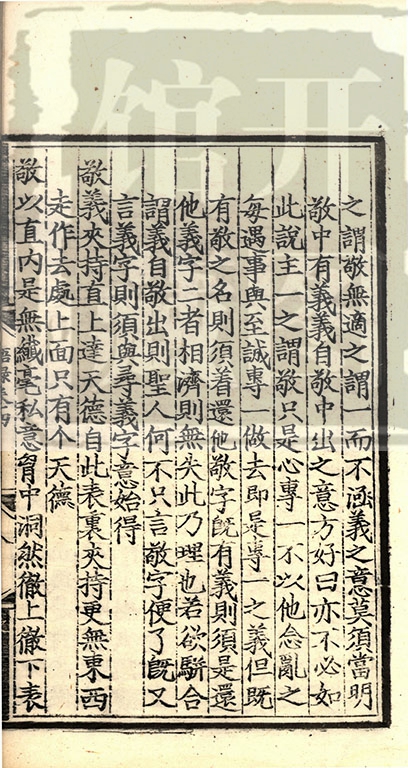 之謂敬無適之謂一而不涵義之意莫須當明
敬中有義義自敬中出之意方好曰亦不必如
此說主一之謂敬只是心專一不以他念亂之
每遇事與至誠專一做去即是專一之義但既
有敬之名則須着還他敬字既有義則須是還
他義字二者相濟則無失此乃理也若欲駢合
謂義自敬出則聖人何不只言敬字便了既又
言義字則須與尋義字意始得
敬義夾持直上達天德自此表裏夾持更無東西
走作去處上面只有个天德
敬以直内是無纖毫私意胷中洞然徹上徹下表